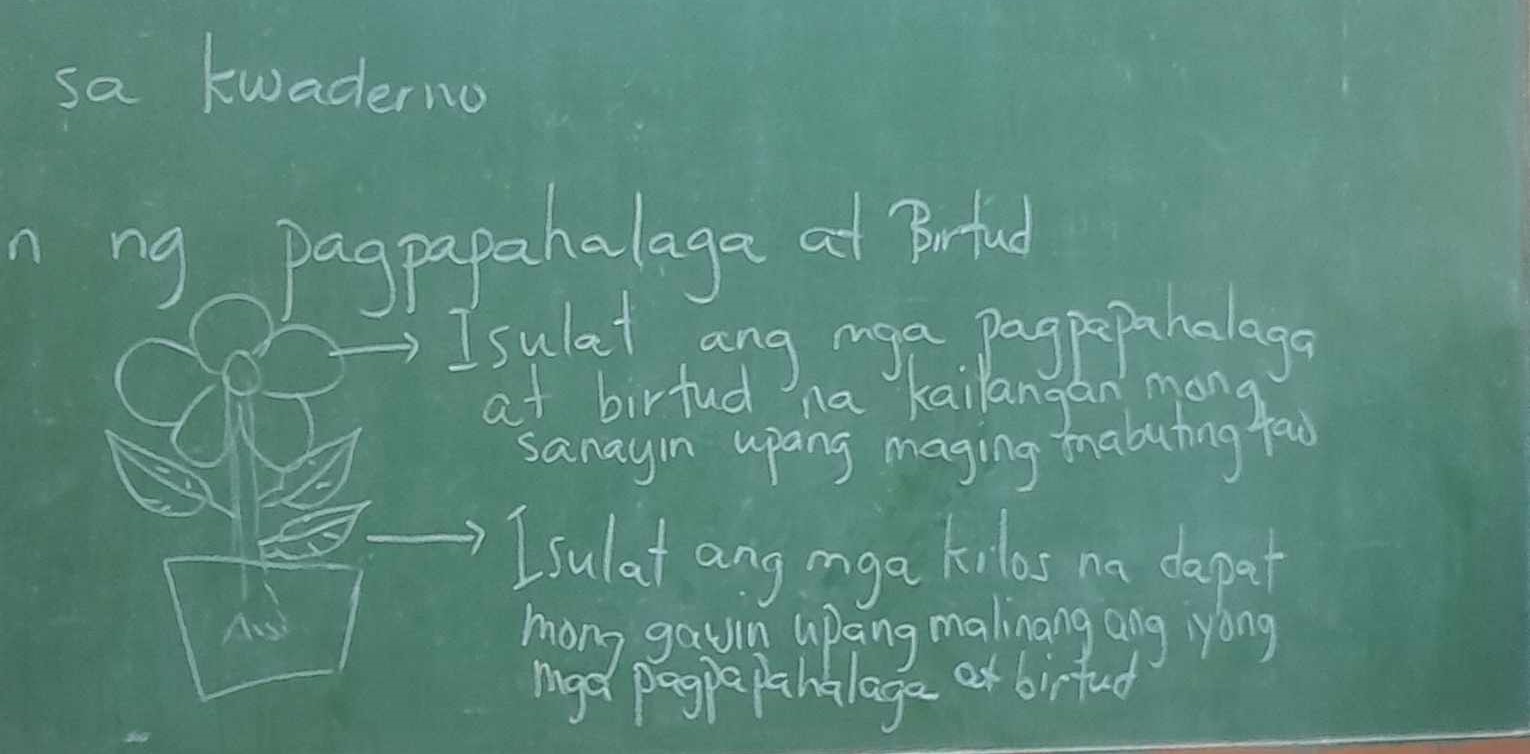 sa kwaderno
n ng pagpapahalaga at Birtud
Isulat ang mga pagpapahalaga
at birtud na kailangan mong
sanayin upang maging mabuting tao
Isulat ang mga kilos na dapat
mong gawin upang malinang ang iyong
mga pagpapahalaga at birtud